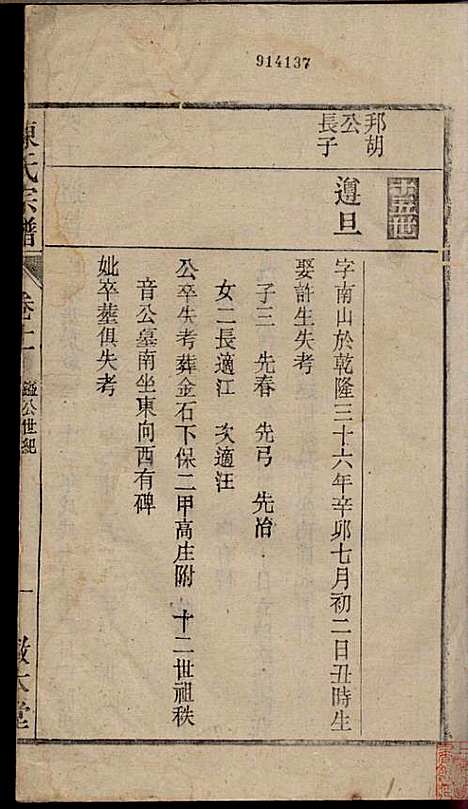 914137
十五世
邦胡
公
長子
遵旦
字南山於乾隆三十六年辛卯七月初二日丑時生
娶許生失考
子三 先春 先弓 先冶
女二長適江 次適汪
公卒失考葬金石下保二甲高庄附 十二世祖秩
音公墓南坐東向西有碑
妣卒葬俱失考
陳氏宗譜
卷十一
公世紀
一
敦本堂